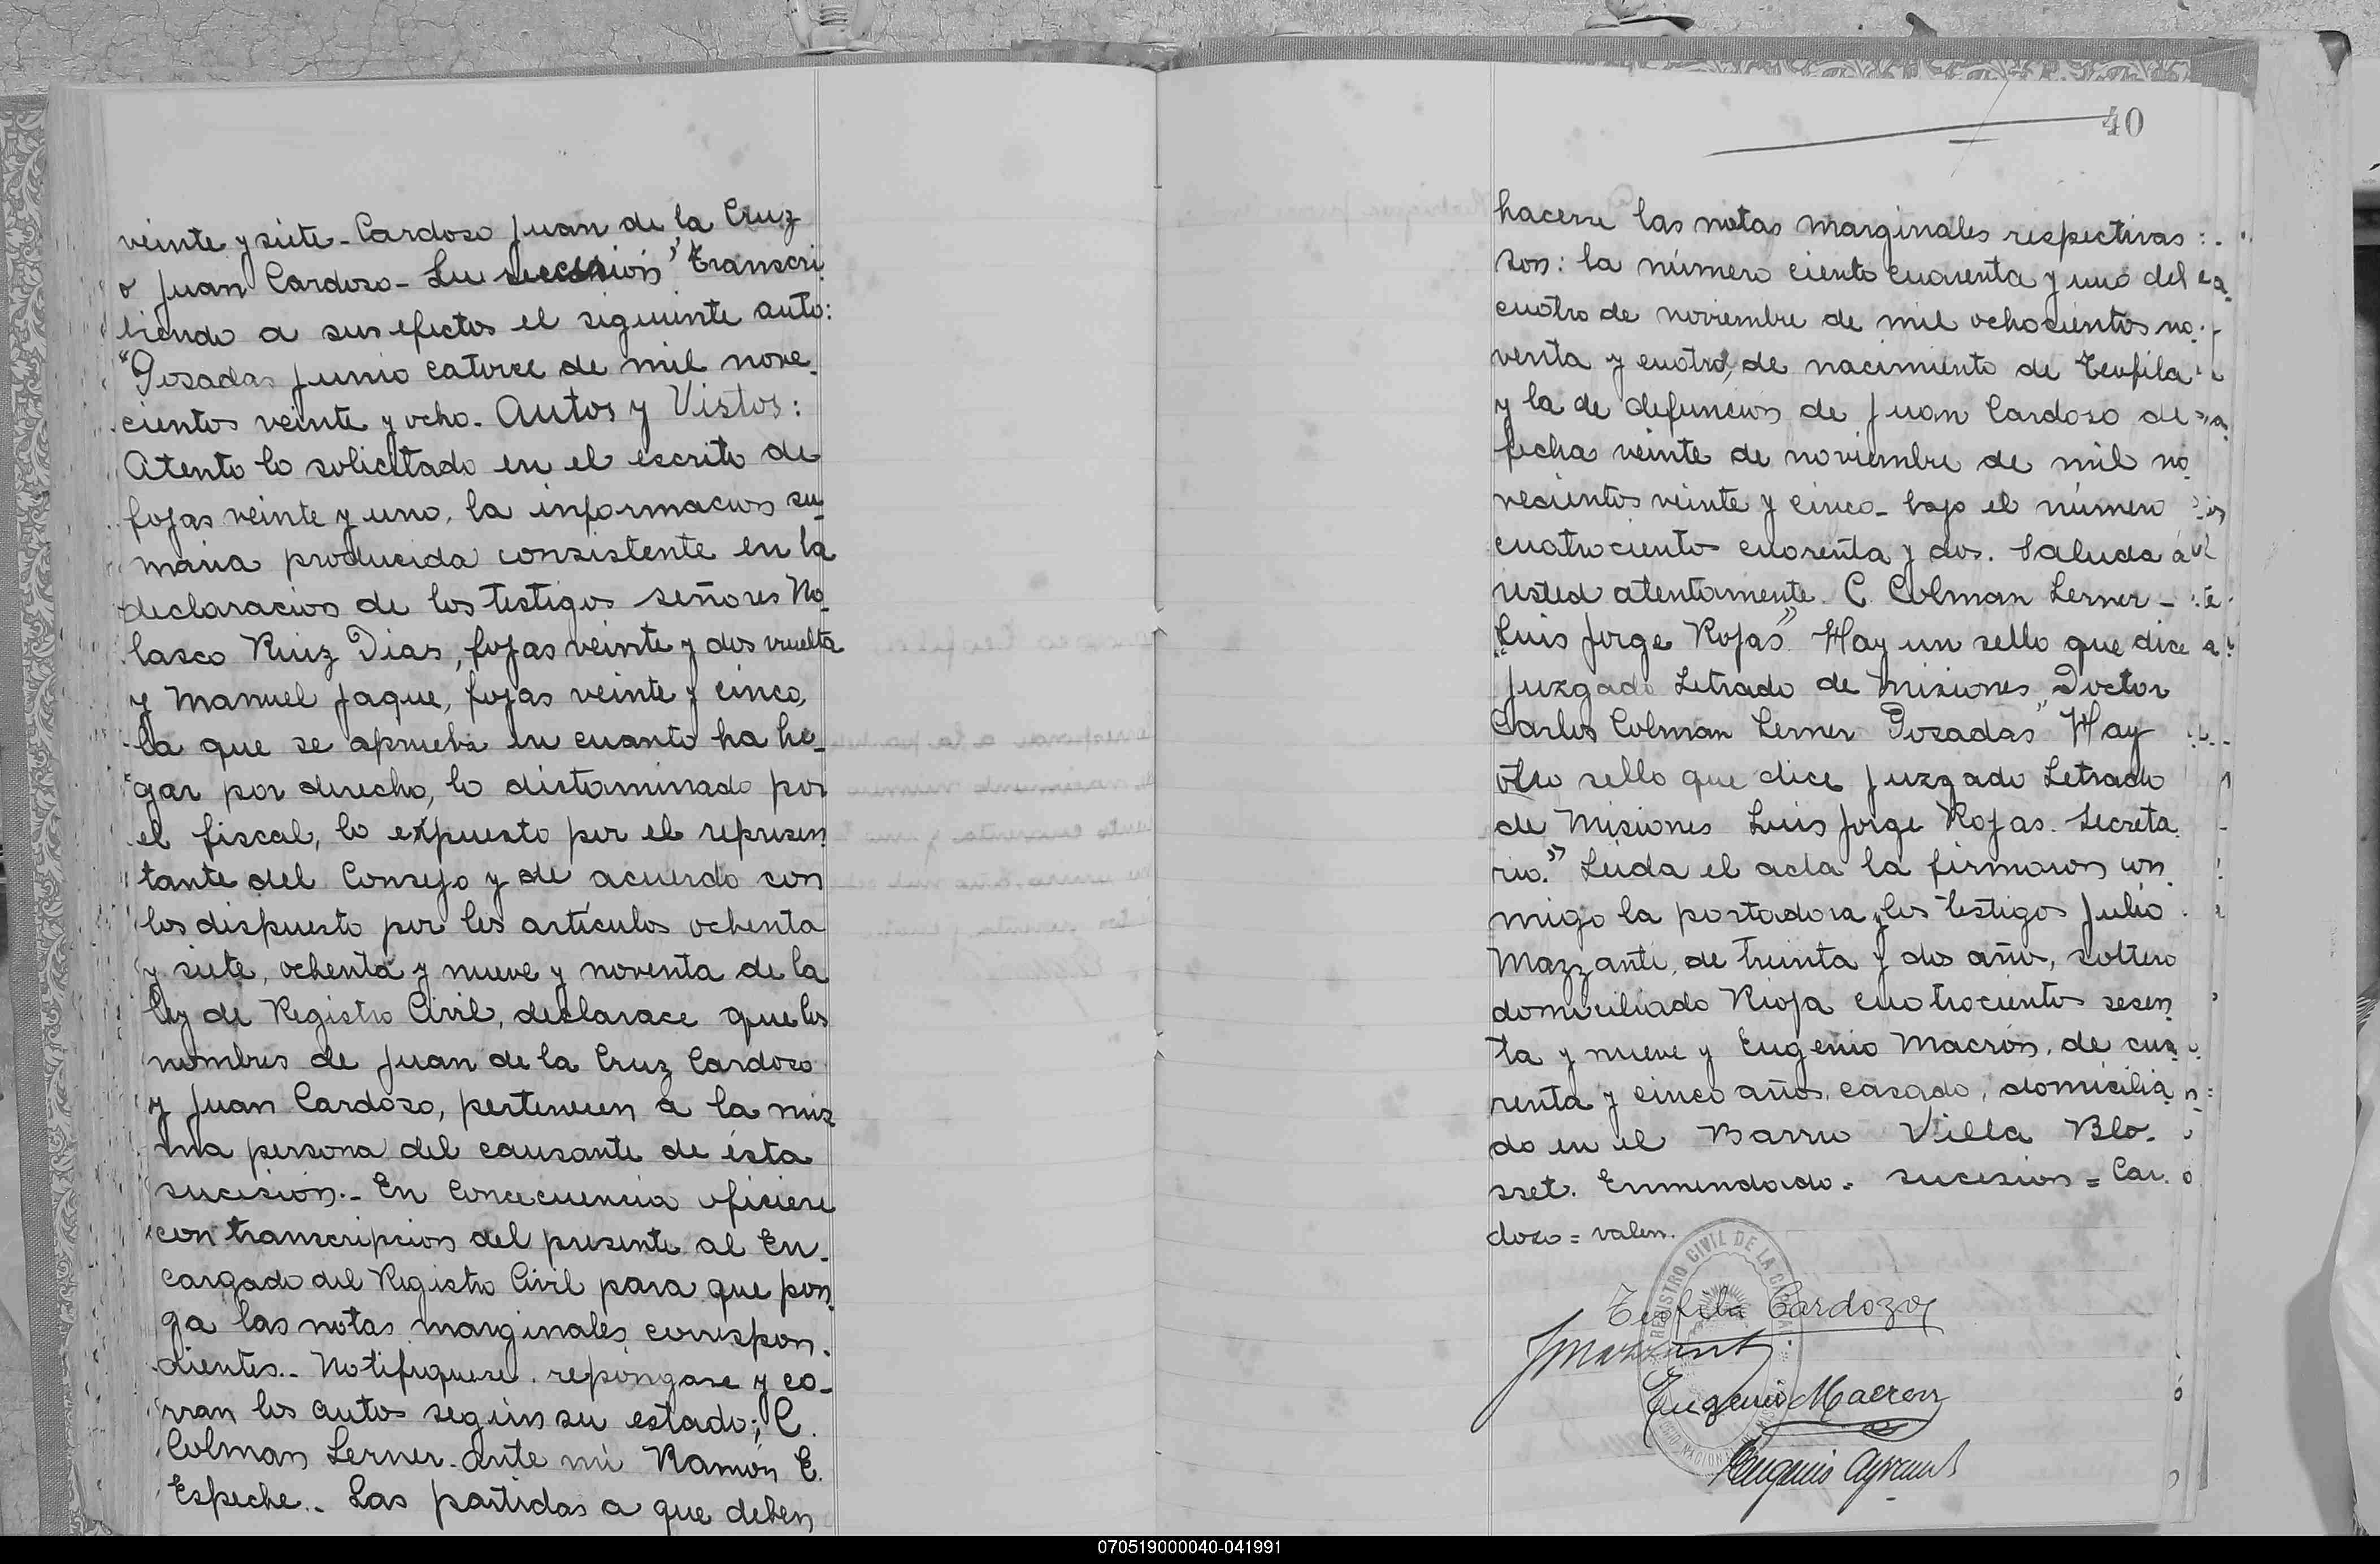 veinte y siete - Cardoso Juan de la Cruz
o Juan Cardoso - Su sucesión" transcri
biendo a sus efectos el siguiente auto:
"Posadas Junio catorce de mil nove_
cientos veinte y ocho. Autos y Vistos:
Atento lo solicitado en el escrito de
fojas veinte y uno, la informacion su_
maria producida consistente en la
declaracion de los testigos señores No_
lasco Ruiz Dias, fojas veinte y dos vuelta
y Manuel Jaque, fojas veinte y cinco,
la que se aprueba en cuanto ha lu_
gar por derecho, lo dictaminado por
el fiscal, lo expuesto por el represen_
tante del Consejo y de acuerdo con
los dispuesto por los artículos ochenta
y siete, ochenta y nueve y noventa de la
ley de Registro Civil, declarace que los
nombres de Juan de la Cruz Cardoso
y Juan Cardoso, pertenecen a la mis_
ma persona del causante de ésta
sucesión.- En Concecuencia oficiese
con transcripcion del presente al En_
cargado del Registro Civil para que pon_
ga las notas marginales correspon_
dientes.- Notifiquese, repóngase y co_
rran los autos según su estado; C.
Colman Lerner. Ante mi Ramón E.
Espeche.- Las partidas a que deben
40
hacerse las notas marginales respectivas
son: la número ciento cuarenta y uno del
cuatro de noviembre de mil ochocientos no_
venta y cuatro, de nacimiento de Teofila
y la de defuncion de Juan Cardoso de
fecha veinte de noviembre de mil no_
vecientos veinte y cinco - bajo el número
cuatrociento cuarenta y dos. Saluda á
usted atentamente. C. Colman Lerner -
Luis Jorge Rojas" Hay un sello que dice
"Juzgado Letrado de Misiones Doctor
Carlos Colman Lerner Posadas" Hay
otro sello que dice Juzgado Letrado
de Misiones Luis Jorge Rojas. Secreta_
rio." Leida el acta la firmaron con_
migo la portadora y los testigos Julio
Mazzanti, de treinta y dos años, soltero
domiciliado Rioja cuatrociento sesen_
ta y nueve y Eugenio Macrón, de cua_
renta y cinco años, casado, domicilia_
do en el Barrio Villa Blo_
sset. Enmendado = sucesion = Car_
doso = valen.
REGISTRO CIVIL DE LA CAPITAL
Teofila Cardozo
JMazzanti
Eugenio Macron
Eugenio
070519000040-041991